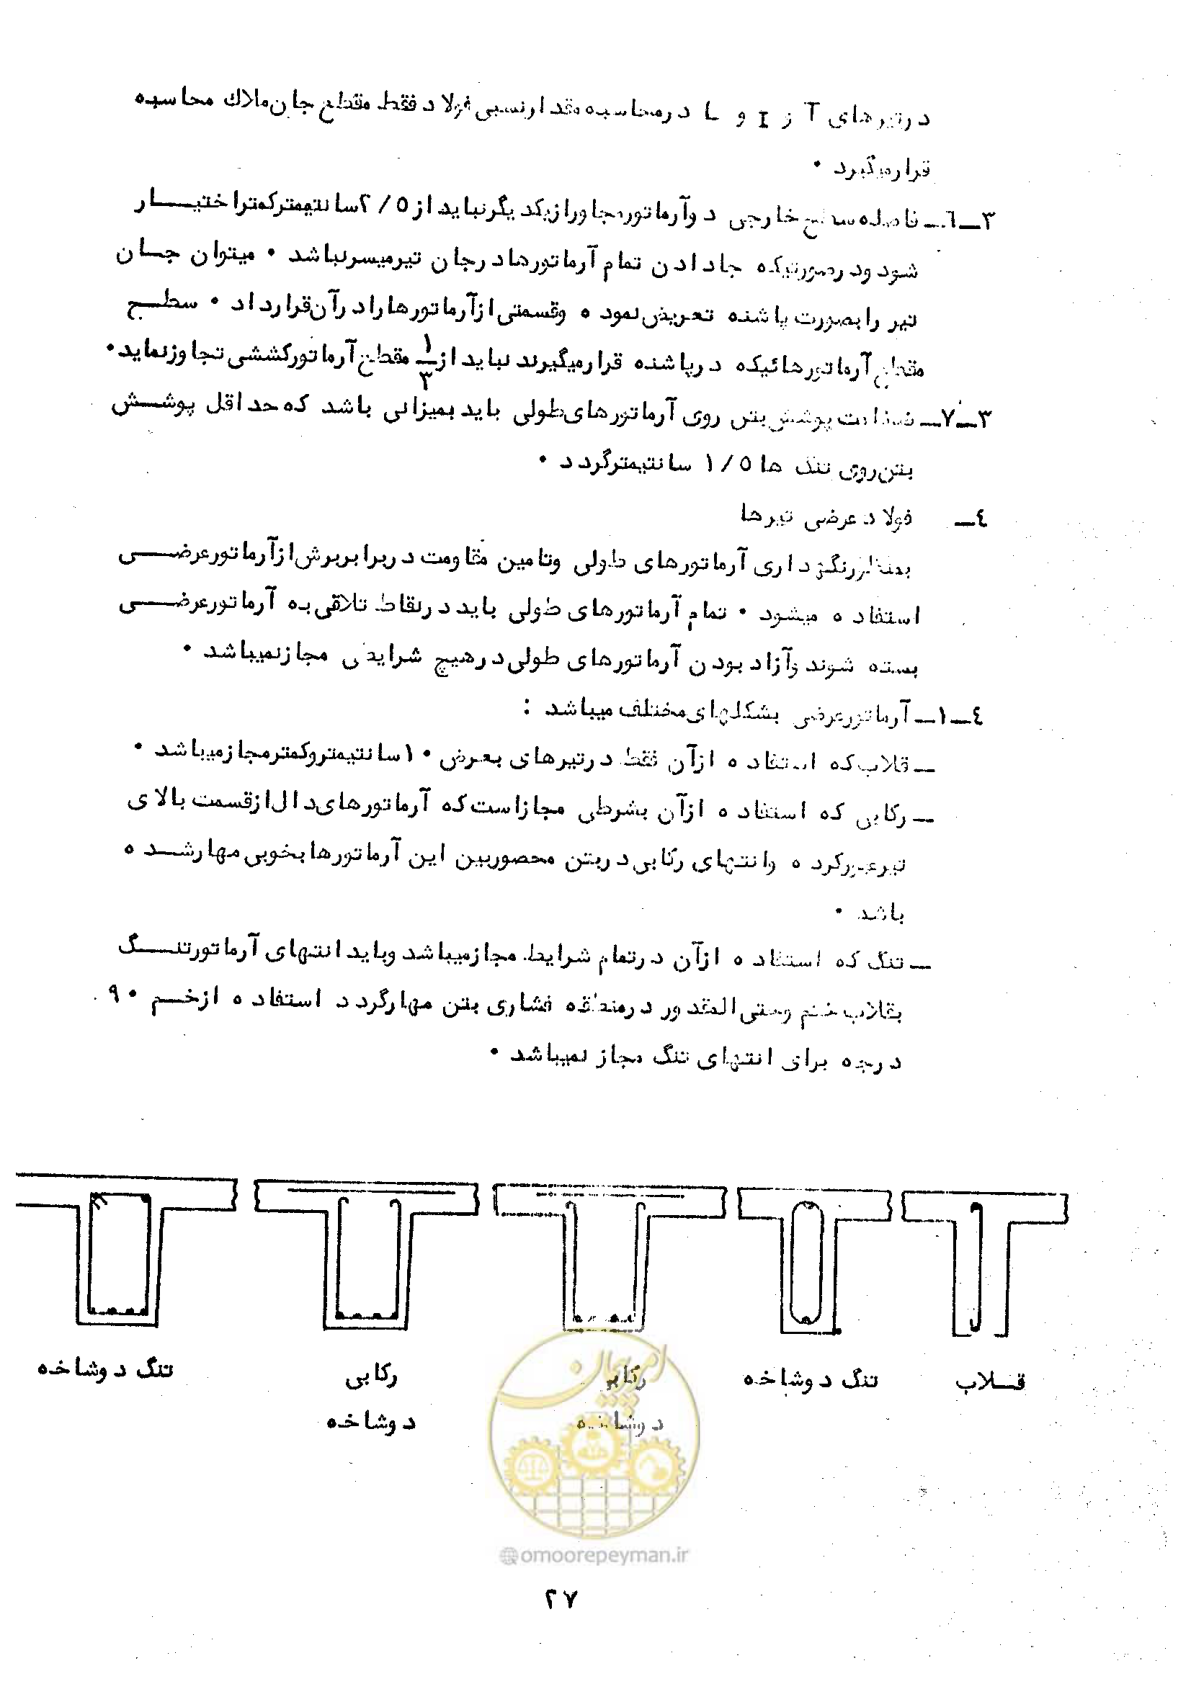 درتیرهای T و I و L درمحاسبه مقدارنسبی فولاد فقط مقطع جان ملاک محاسبه
قرارمیگیرد .
۳ــ٦ــ فاصله سطح خارجی دوآرماتورمجاورازیکدیگرنباید از ۲/۵سانتیمترکمتراختیــار
شود ودرصورتیکه جادادن تمام آرماتورها درجان تیرمیسرنباشد . میتوان جــان
تیر رابصورت پاشنه تعریض نموده وقسمتی ازآرماتورها رادرآن قرارداد . سطــح
مقطع آرماتورهائیکه درپاشنه قرارمیگیرند نباید از ۱/۳ مقطع آرماتورکششی تجاوزنماید .
۳ــ۷ــ ضخامت پوشش بتن روی آرماتورهای طولی باید بمیزانی باشد که حداقل پوشــش
بتن روی تنگ ها ۱/۵ سانتیمترگردد .
٤ــ فولاد عرضی تیرها
بمنظورنگهداری آرماتورهای طولی وتامین مقاومت دربرابربرش ازآرماتورعرضــی
استفاده میشود . تمام آرماتورهای طولی باید درنقاط تلاقی به آرماتورعرضــی
بسته شوند وآزاد بودن آرماتورهای طولی درهیچ شرایطی مجازنمیباشد .
٤ــ۱ــ آرماتورعرضی بشکلهای مختلف میباشد :
ــ قلاب که استفاده ازآن فقط درتیرهای بعرض ۱۰سانتیمتروکمترمجازمیباشد .
ــ رکابی که استفاده ازآن بشرطی مجازاست که آرماتورهای دال ازقسمت بالای
تیرعبورکرده وانتهای رکابی دربتن محصوربین این آرماتورها بخوبی مهارشــده
باشد .
ــ تنگ که استفاده ازآن درتمام شرایط مجازمیباشد وباید انتهای آرماتورتنــگ
بقلاب ختم وحتی المقدور درمنطقه فشاری بتن مهارگردد استفاده ازخــم ۹۰
درجه برای انتهای تنگ مجاز نمیباشد .
قــلاب
تنگ دوشاخه
رکابی
دوشاخه
رکابی
دوشاخه
تنگ دوشاخه
امور پیمان
@omoorepeyman.ir
۲۷